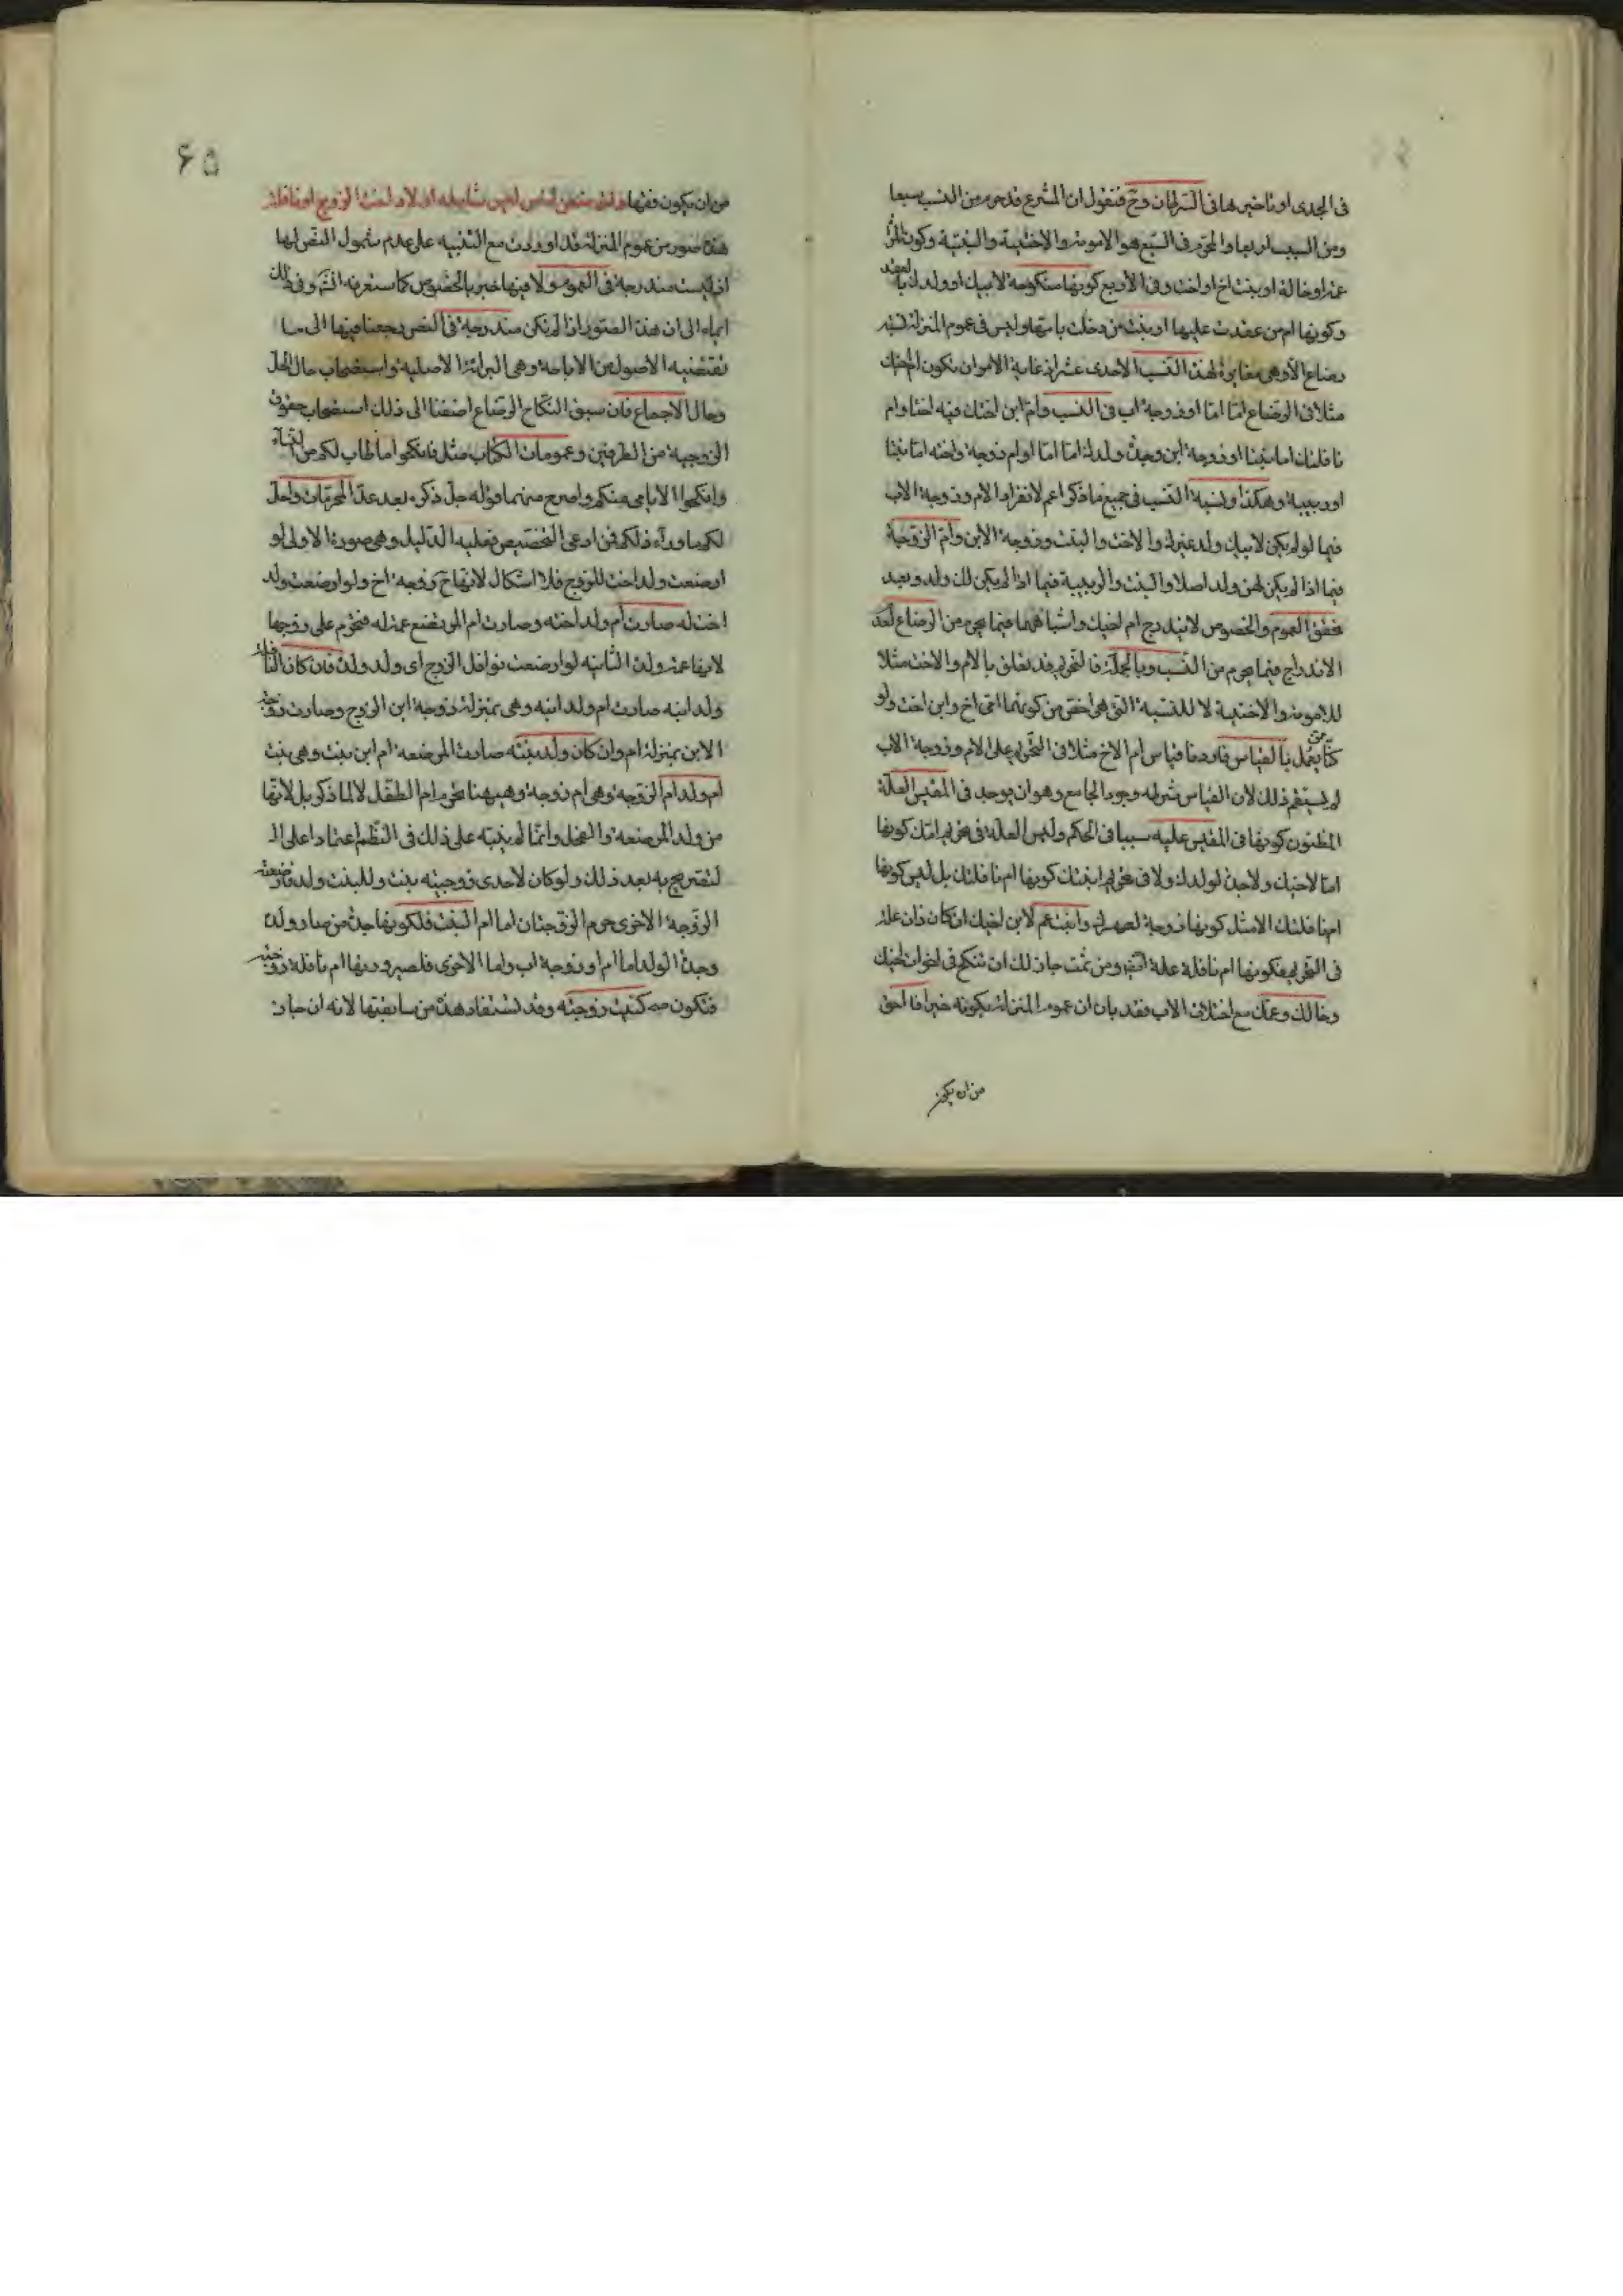 فى الجدى او تاخيرها فى السرطان وح فنقول ان الشرع قد حرم من النسب سبعا
ومن السبب اربعا والمحرم فى السبع هو الامومة والاختية والبنتية وكون المرأة
عمة او خالة او بنت اخ او اخت وفى الاربع كونها منكوحة لابيك او ولدك بالعقد
وكونها ام من عقدت عليها او بنت من دخلت بامها وليس فى عموم المنزلة نسبة
رضاع الا وهى مغايرة لهذه النسب الاحدى عشر اذ غاية الامر ان يكون ام اخيك
مثلا فى الرضاع امّا امّا او زوجة اب فى النسب وام ابن اختك فيه اختا وام
نافلتك اما بنتا او زوجة ابن وجدة ولدك اما امّا او ام زوجة واخته امّا بنتا
او ربيبة وهكذا ونسبة النسب فى جميع ما ذكر اعم لانفراد الام وزوجة الاب
فيما لو لم يكن لابيك ولد غيرك والاخت والبنت وزوجة الابن وام الزوجة
فيما اذا لم يكن لهن ولد اصلا والبنت والربيبة فيما اذا لم يكن لك ولد وبعد
تحقق العموم والخصوص لا يندرج ام اخيك واشباهها فيما يحرم من الرضاع لعدم
الاندراج فيما يحرم من النسب وبالجملة فالتحريم قد تعلق بالام والاخت مثلا
للامومة والاختية لا للنسبة التى هى اخص من كونهما امّى اخ وابن اخت ولو
كنّا ممن يعمل بالقياس فاردنا قياس ام الاخ مثلا فى التحريم على الام وزوجة الاب
لم يستقم ذلك لان القياس شرطه وجود الجامع وهو ان يوجد فى المقيس العلة
المظنون كونها فى المقيس عليه سببا فى الحكم وليس العلة فى تحريم امّك كونها
امّا لاخيك ولا جدة لولدك ولا فى تحريم ابنتك كونها ام نافلتك بل ليس كونها
ام نافلتك الا مثل كونها زوجة لصهرك وابنة عم لابن اخيك ان كان ذان علة
فى التحريم فكونها ام نافلة علة التحريم ومن ثمت جاز لك ان تنكح فى اخوات اخيك
وخالك وعمك مع اختلاف الاب فقد بان ان عموم المنزلة بكونه خيرافا احق
من ان يكون
۶۵
من ان يكون فقها
هذه صور من عموم المنزلة قد اوردت مع التنبيه على عدم شمول النص لها
اذ ليست مندرجة فى العموم ولا فيها خبر بالخصوص كما ستعرفه انشم وفى ذلك
ايماء الى ان هذه الصور اذا لم تكن مندرجة فى النص رجعنا فيها الى ما
تقتضيه الاصول من الاباحة وهى البرائة الاصلية واستصحاب حال العقل
وحال الاجماع فان سبق النكاح الرضاع اضفنا الى ذلك استصحاب حقوق
الزوجية من الطرفين وعمومات الكتاب مثل فانكحوا ما طاب لكم من النساء
وانكحوا الايامى منكم واصرح منهما قوله جل ذكره بعد عدّ المحرمات واحل
لكم ما وراء ذلكم فمن ادعى التخصيص فعليه الدليل وهى صورة الاولى لو
ارضعت ولد اخت للزوج فلا اشكال لانها ح زوجة اخ ولو ارضعت ولد
اخت له صارت ام ولد اخته وصارت ام المرتضع عمة له فتحرم على زوجها
لانها عمة ولده الثانية لو ارضعت نوافل الزوج اى ولد ولده فان كان النافلة
ولد ابنه صارت ام ولد ابنه وهى بمنزلة زوجة ابن الزوج وصارت زوجة
الابن بمنزلة ام وان كان ولد بنته صارت المرضعة ام ابن بنت وهى بنت
ام ولد ام الزوجة وهى ام زوجة وههنا تحرم ام الطفل لا لما ذكر بل لانها
من ولد المرضعة والفحل وانما لم ينبه على ذلك فى النظم اعتمادا على الـ
لتصريح به بعد ذلك ولو كان لاحدى زوجيته بنت وللبنت ولد فارضعته
الزوجة الاخرى حرم الزوجتان اما ام البنت فلكونها جدة من صار ولده
وجدة الولد اما ام او زوجة اب واما الاخرى فلصيرورتها ام نافلة زوجته
فتكون كبنت زوجته وقد تستفاد هذه من سابقتها لانه ان جاز